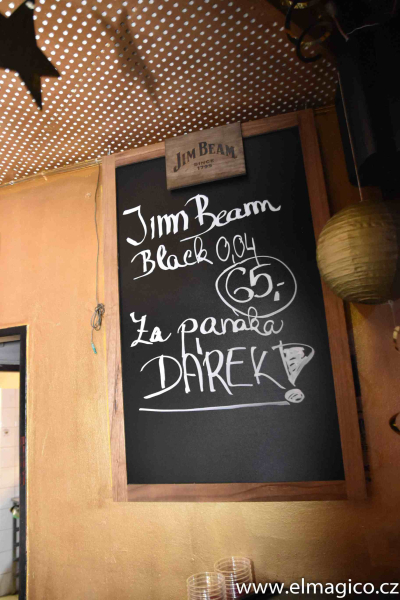 JIM BEAM
SINCE
1795
Jim Beam
Black 0,04
65,-
Za panáka
DÁREK!
www.elmagico.cz